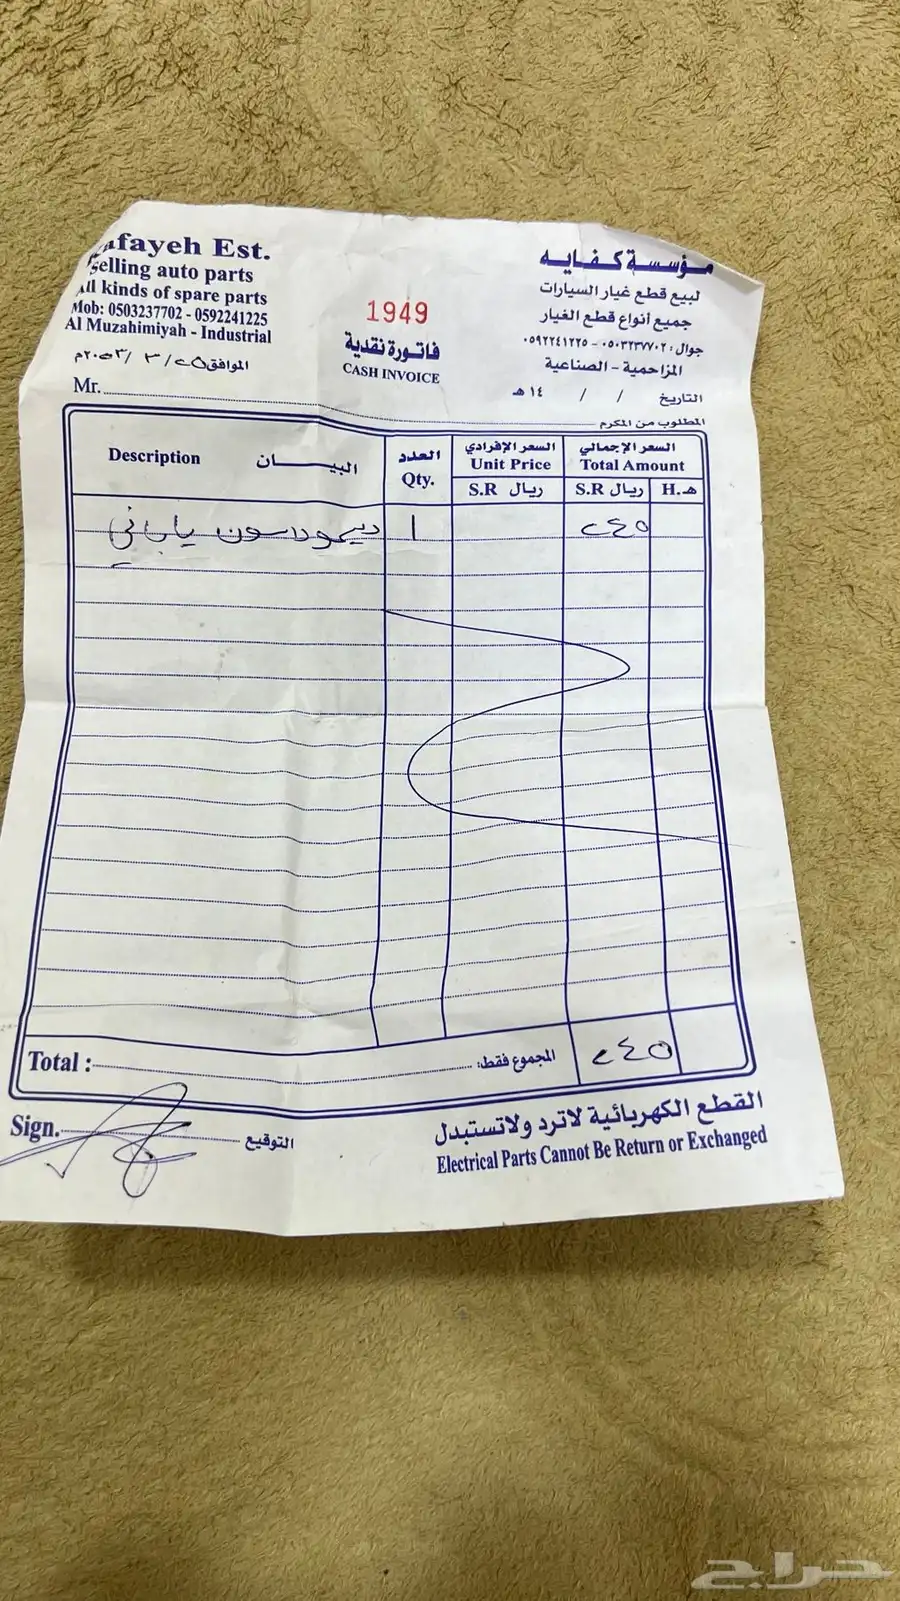 afayeh Est.
selling auto parts
All kinds of spare parts
Mob: 0503237702 - 0592241225
Al Muzahimiyah - Industrial
الموافق ٢٥ / ٣ / ٢٠٥٣م
1949
فاتورة نقدية
CASH INVOICE
مؤسسة كفايه
لبيع قطع غيار السيارات
جميع أنواع قطع الغيار
جوال: ٠٥٠٣٢٣٧٧٠٢ - ٠٥٩٢٢٤١٢٢٥
المزاحمية - الصناعية
التاريخ / / ١٤هـ
Mr.
المطلوب من المكرم
Description البيـــان العدد Qty. السعر الإفرادي Unit Price السعر الإجمالي Total Amount
S.R ريال S.R ريال H. هـ
ياباني ١ ٢٤٥
Total : المجموع فقط: ٢٤٥
Sign. التوقيع
القطع الكهربائية لاترد ولاتستبدل
Electrical Parts Cannot Be Return or Exchanged
حراج